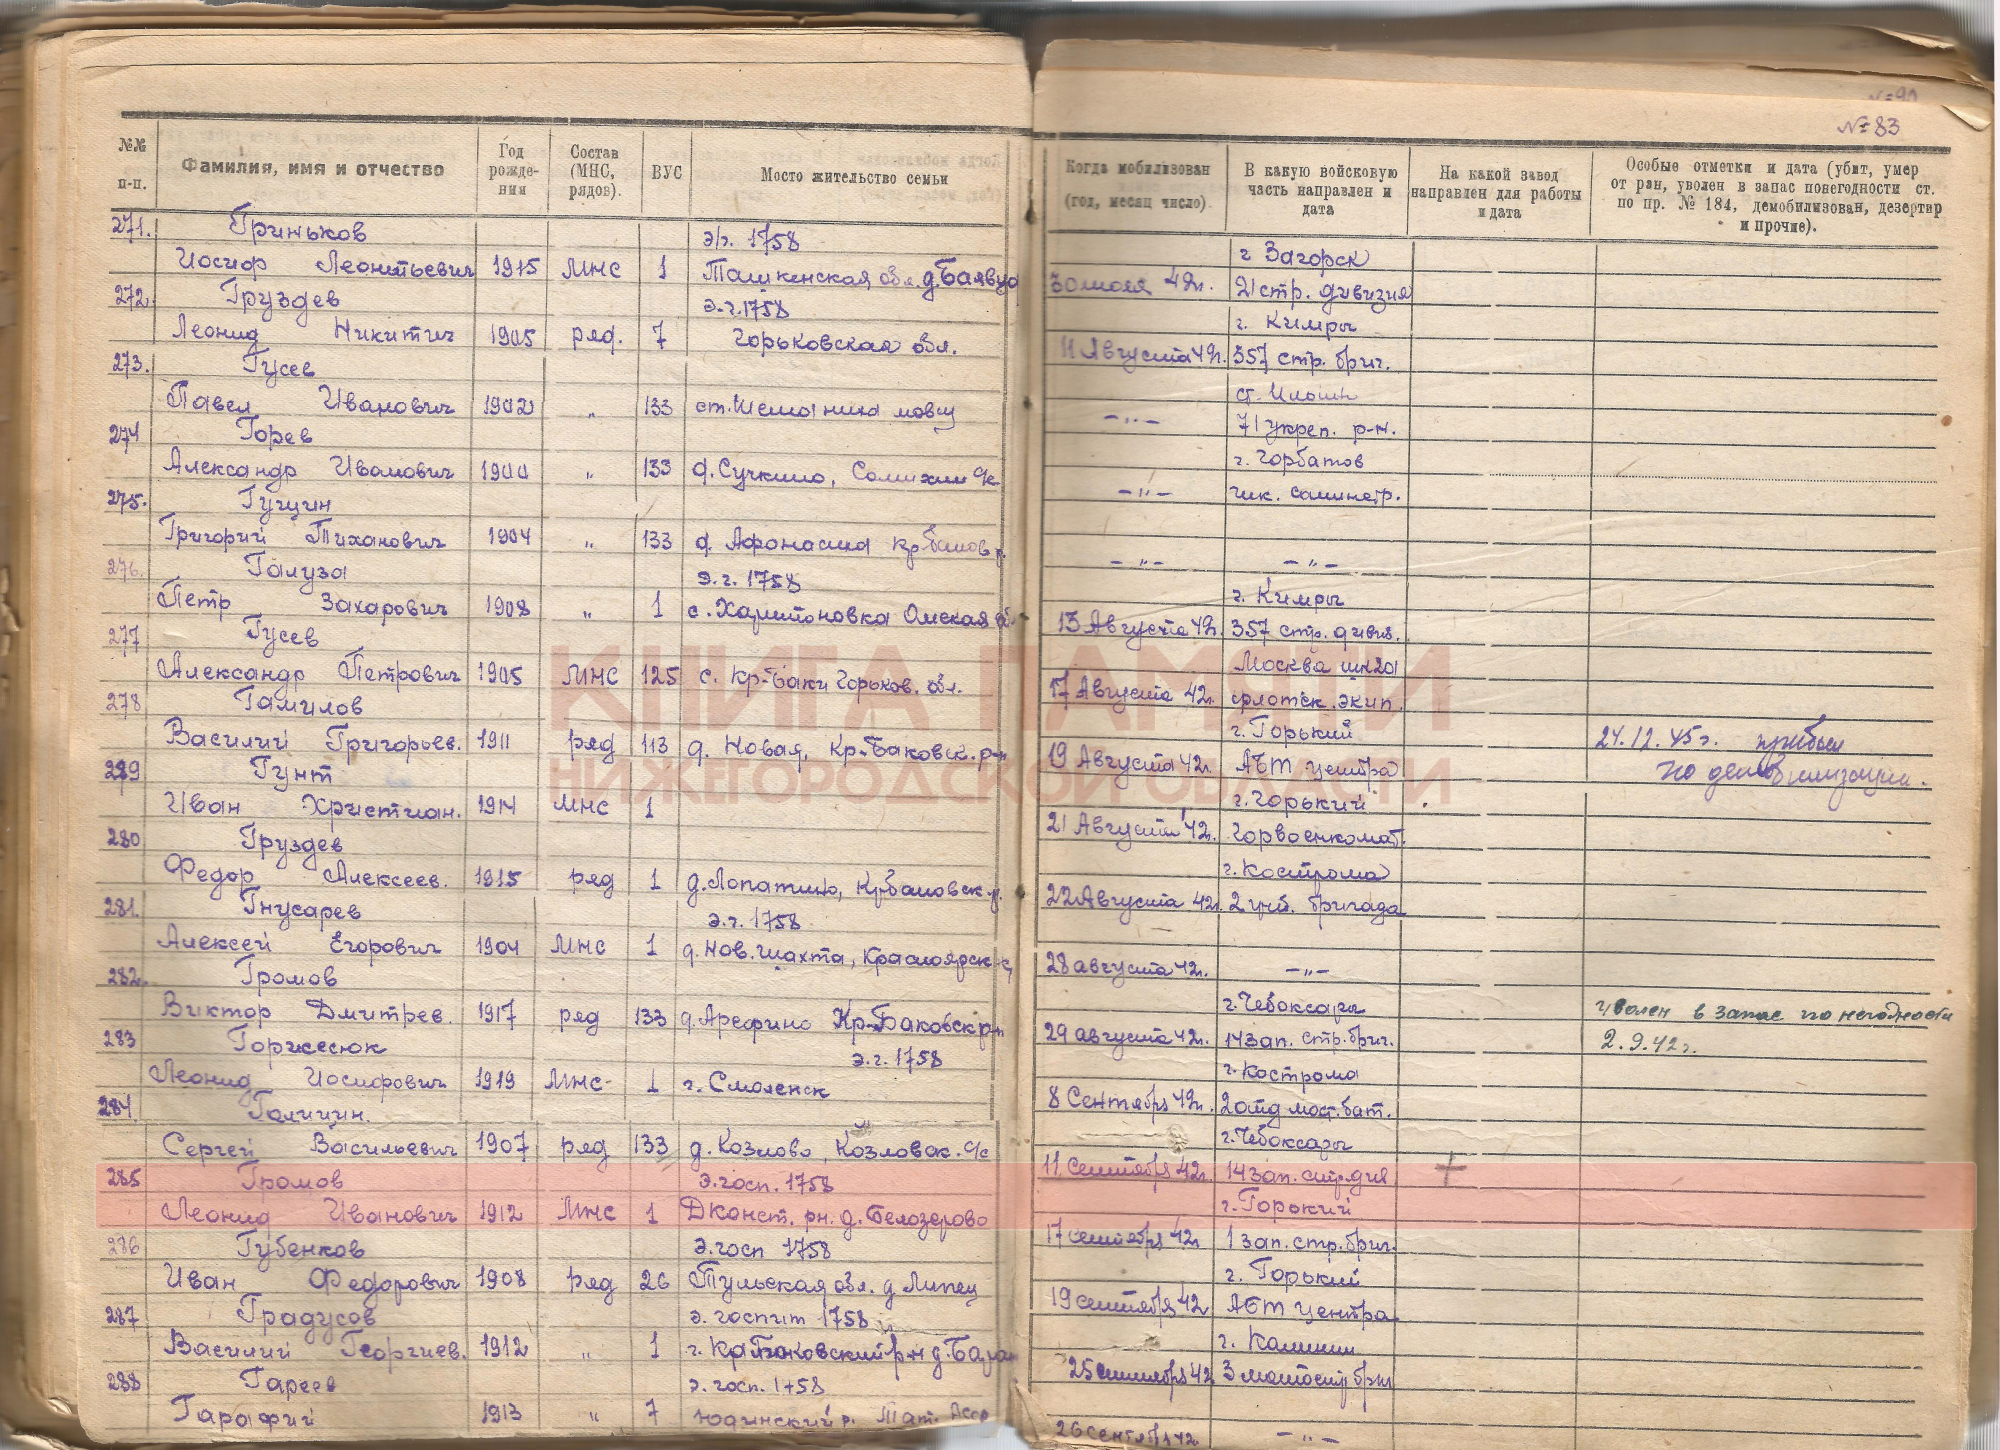 № 83
№№ п-п. Фамилия, имя и отчество Год рожде-ния Состав (МНС, рядов). ВУС Мосто жительство семьи
Когда мобилизован (год, месяц число). В какую войсковую часть направлен и дата На какой завод направлен для работы и дата Особые отметки и дата (убит, умер от ран, уволен в запас понегодности ст. по пр. № 184, демобилизован, дезертир и прочие).
271. Гриньков э/г. 1758
Иосиф Леонтьевич 1915 МНС 1 Ташкенская обл. д.
272. Груздев э.г. 1758
Леонид Никитич 1905 ряд. 7 Горьковская обл.
273. Гусев
Павел Иванович 1902 " 133 ст.
274 Горев
Александр Иванович 1900 " 133 д. Сучкино,
275. Гущин
Григорий Тиханович 1904 " 133 д.
276. Галуза э.г. 1758
Петр Захарович 1908 " 1 с. Харитоновка Омская
277 Гусев
Александр Петрович 1905 МНС 125 с. Кр-Баки Горьков. обл.
278 Гамилов
Василий Григорьев. 1911 ряд 113 д. Новая, Кр-Баковск. р-н
279 Гунт
Иван Христиан. 1914 МНС 1
280 Груздев
Федор Алексеев. 1915 ряд 1 д. Лопатино,
281. Гнусарев э.г. 1758
Алексей Егорович 1904 МНС 1 д. Нов. шахта, Красноярск
282. Громов
Виктор Дмитрев. 1917 ряд 133 д. Арефино Кр-Баковск р-н
283 Горжесюк э.г. 1758
Леонид Иосифович 1919 МНС- 1 г. Смоленск
284. Галичин.
Сергей Васильевич 1907 ряд 133 д. Козлово, Козловск. с/с
285 Громов э.госп. 1758
Леонид Иванович 1912 МНС 1 Дконст. рн. д. Белозерово
286 Губенков э.госп 1758
Иван Федорович 1908 ряд 26 Тульская обл. д
287 Градусов э. госпит 1758
Василий Георгиев. 1912 " 1 г. Баковский р-н д.
288 Гареев э. госп. 1758
Гарафий 1913 " 7 Юдинский р. Тат. Асср
г Загорск
30 июля 42г. 21 стр. дивизия
г. Кимры
11 Августа 42г. 357 стр. бриг.
ст.
– " – 71 укреп. р-н.
г. Горбатов
– " –
– " – – " –
г. Кимры
13 Августа 42г. 357 стр. дивиз.
Москва
17 Августа 42г. флотск. экип.
г. Горький 24.12.45г. прибыл
19 Августа 42г. АБТ центра по демобилизации.
г. Горький
21 Августа 42г. Горвоенкомат.
г. Кострома
22 Августа 42г. 2 бригада
28 августа 42г. – " –
г. Чебоксары уволен в запас по негодности
29 августа 42г. 14 зап. стр. бриг. 2.9.42г.
г. Кострома
8 Сентября 42г. 2 отд мот. бат.
г. Чебоксары
11 сентября 42г. 14 зап. стр. див +
г. Горький
17 сентября 42г 1 зап. стр. бриг.
г. Горький
19 сентября 42 АБТ центра
г. Калинин
25 сентября 42
26 сентября 42 – " –
КНИГА ПАМЯТИ
НИЖЕГОРОДСКОЙ ОБЛАСТИ